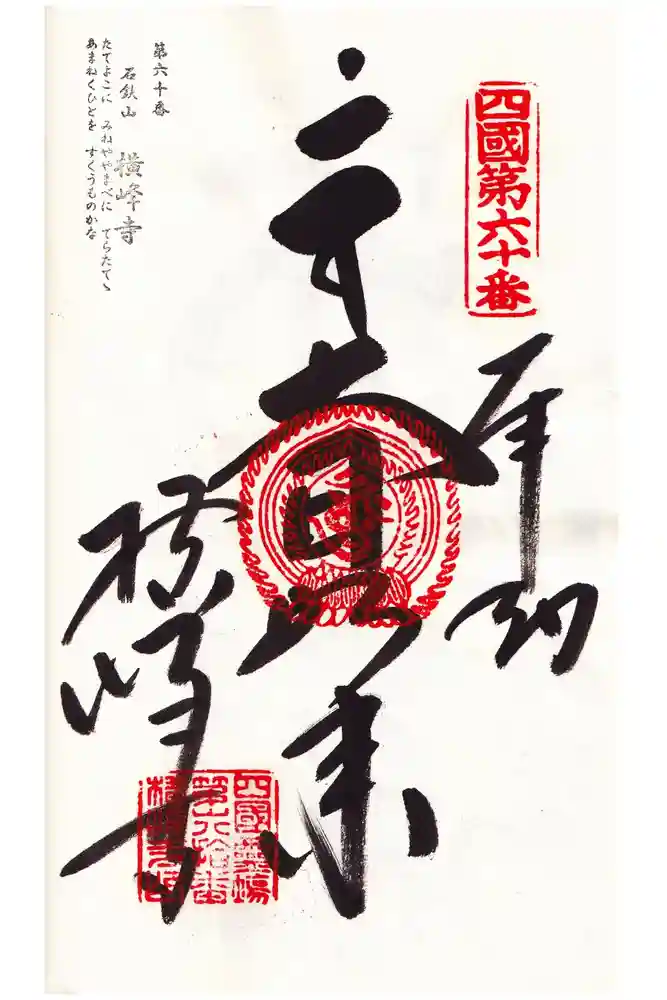 四國第六十番
奉納
大日如来
横峰寺
四國霊場
第六拾番
第六十番
石鈇山 横峰寺
たてよこに みねややまべに てらたてゝ
あまねくひとを すくうものかな